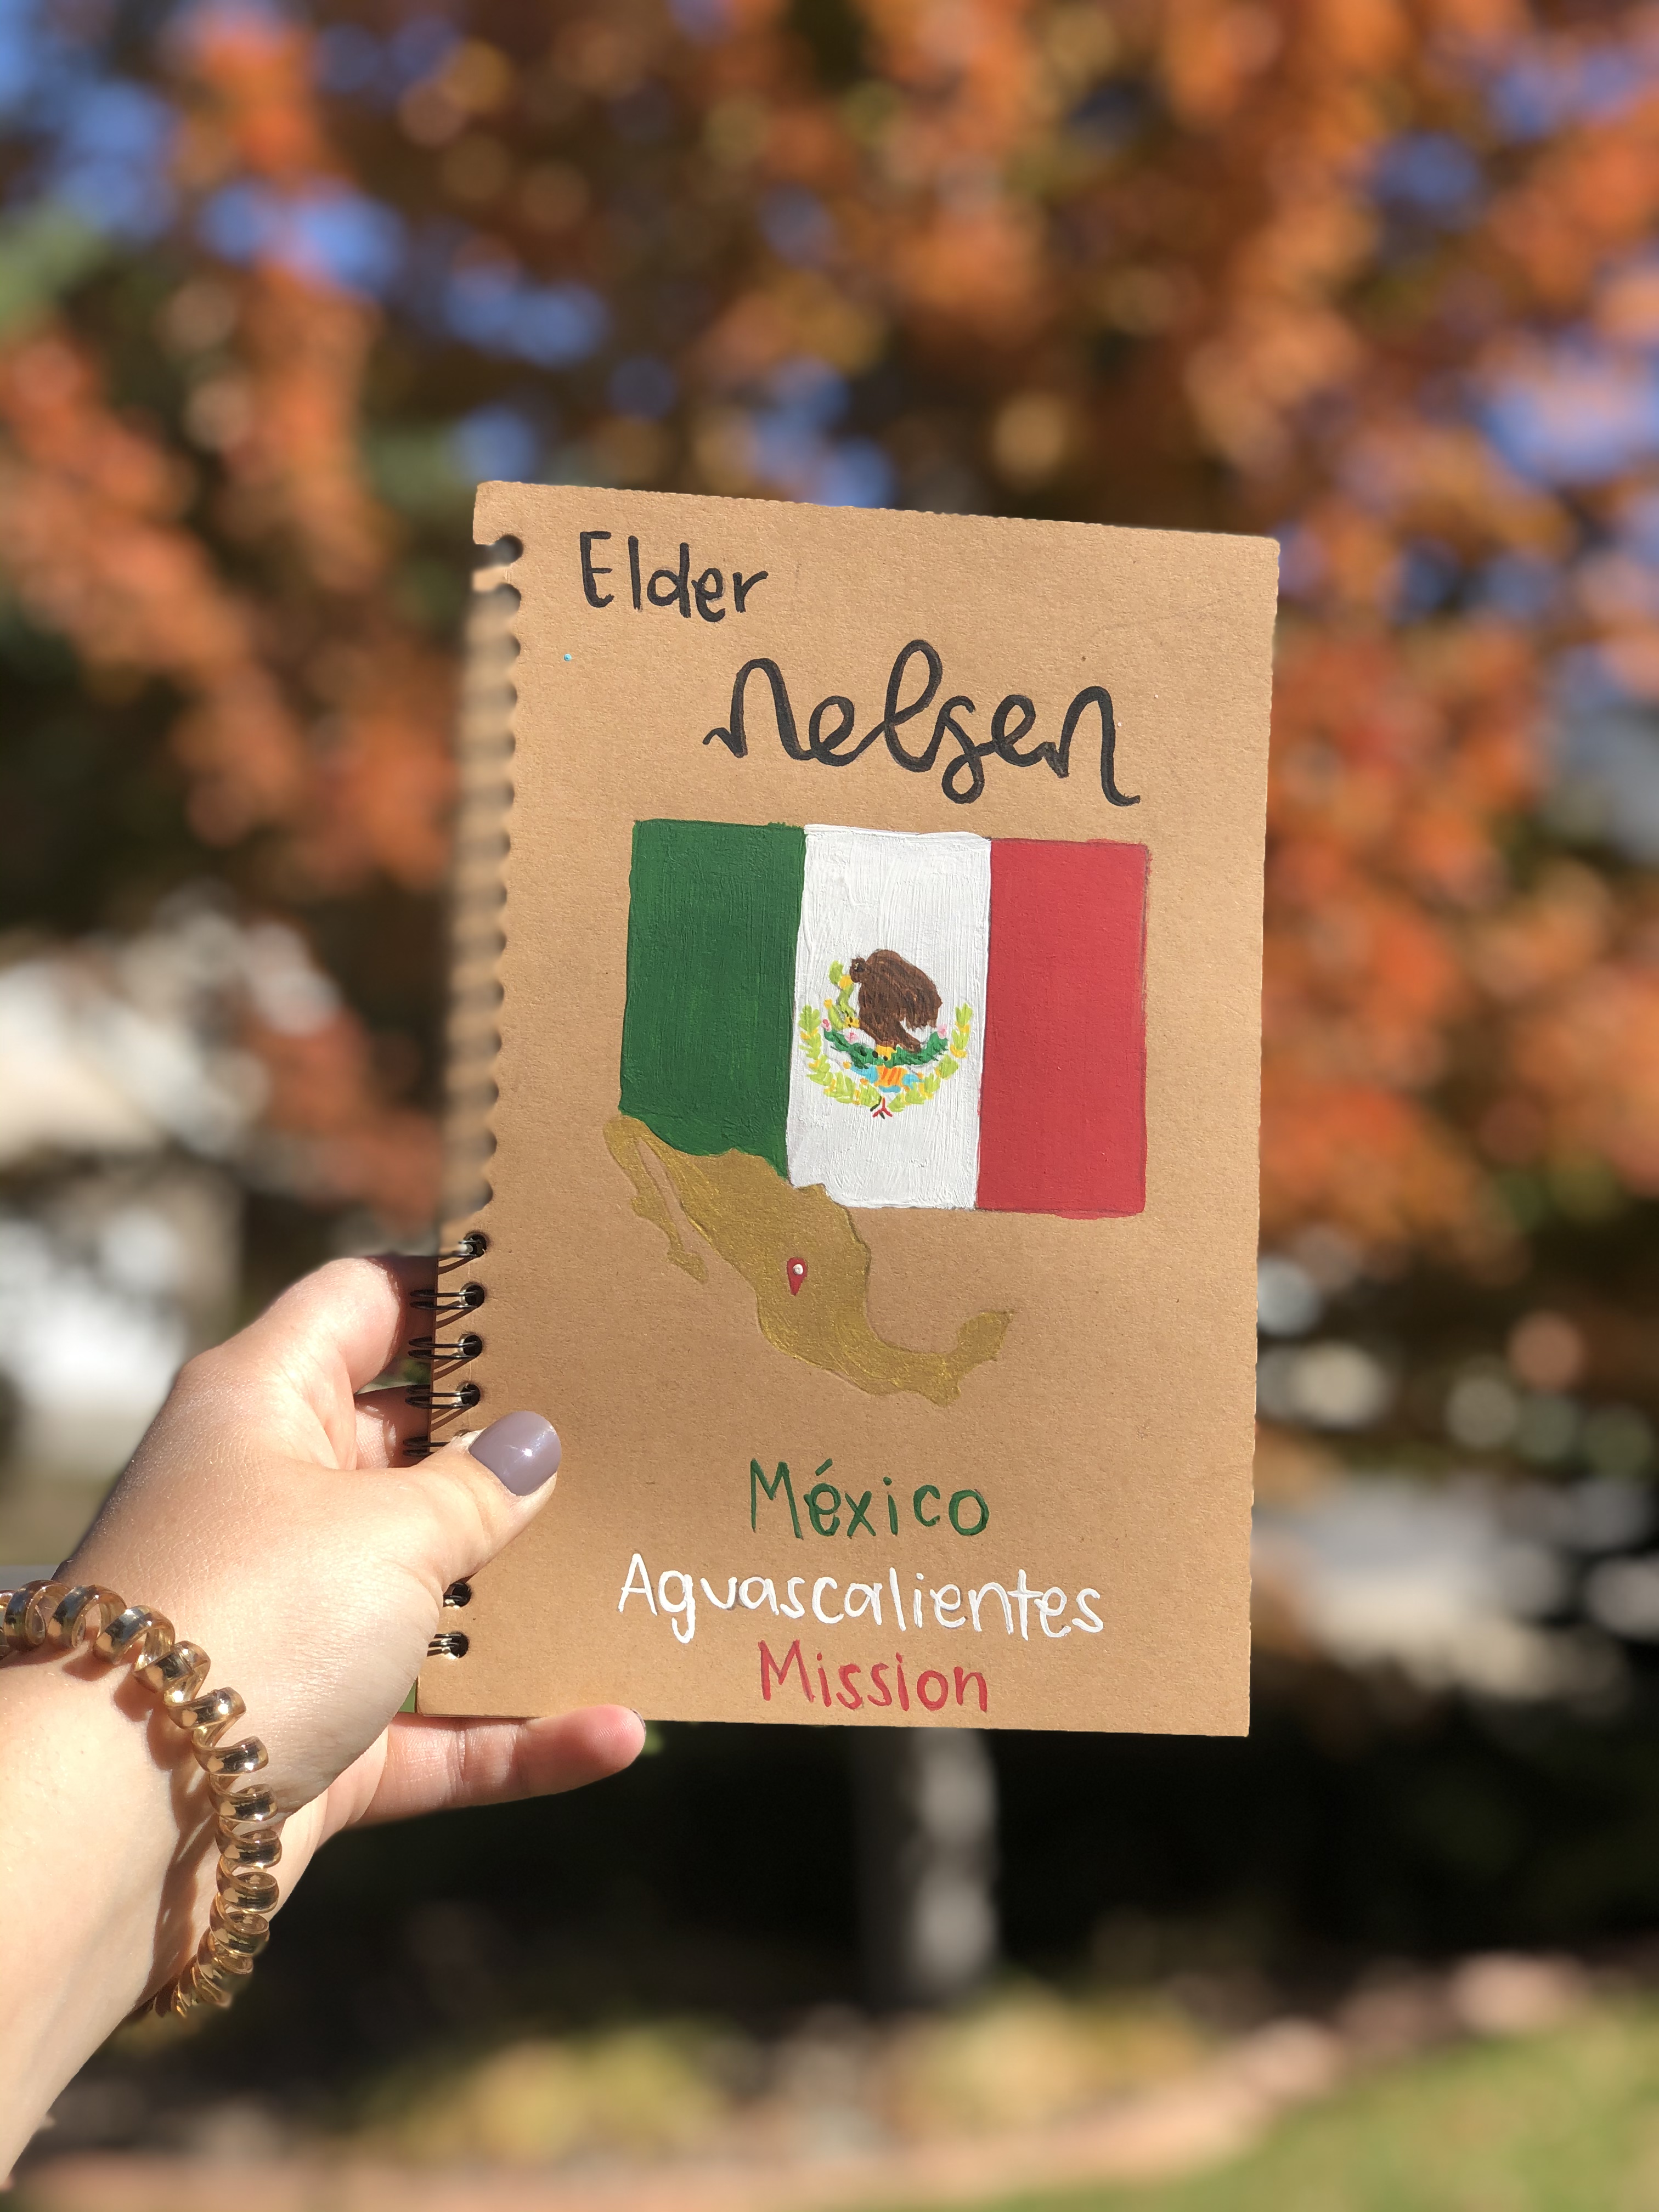 Elder
Nelsen
México
Aguascalientes
Mission